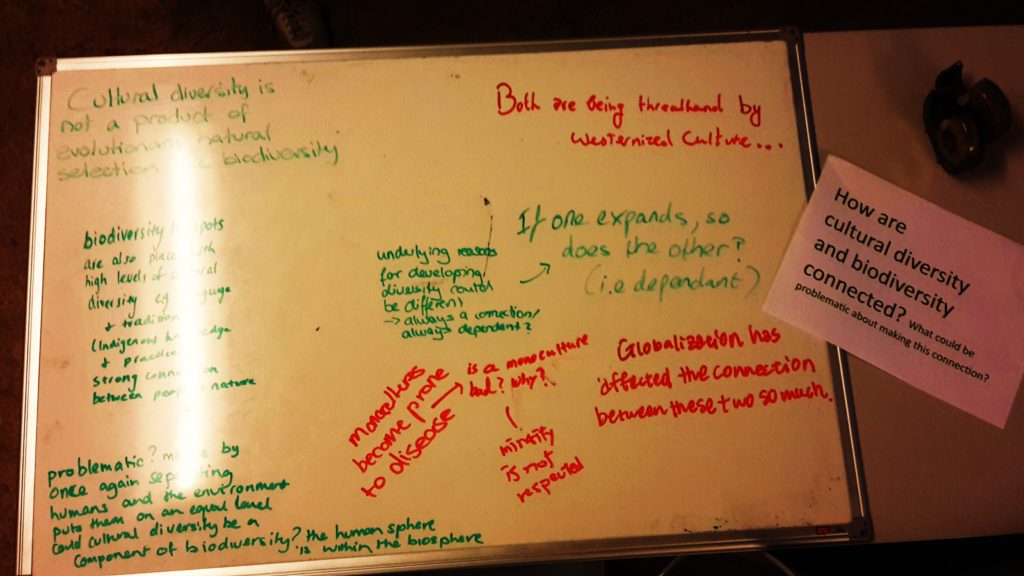 Cultural diversity is
not a product of
evolutionary natural
selection like biodiversity
Both are being threathand by
Westernized Culture...
biodiversity hotspots
are also places with
high levels of cultural
diversity eg language
+ tradition
(Indigenous knowledge
+ practice)
strong connection
between people + nature
undutying reasons
for developing
diversity could
be different
→ always a connection/
always dependant?
If one expands, so
does the other?
(i.e dependant)
monocultures
become prone
to disease
is a monoculture
bad? why?
minority
is not
respected
Globalization has
affected the connection
between these two so much.
problematic? maybe by
once again separating
humans and the environment
puts them on an equal level
could cultural diversity be a
component of biodiversity? the human sphere
is within the biosphere
How are
cultural diversity
and biodiversity
connected? What could be
problematic about making this connection?